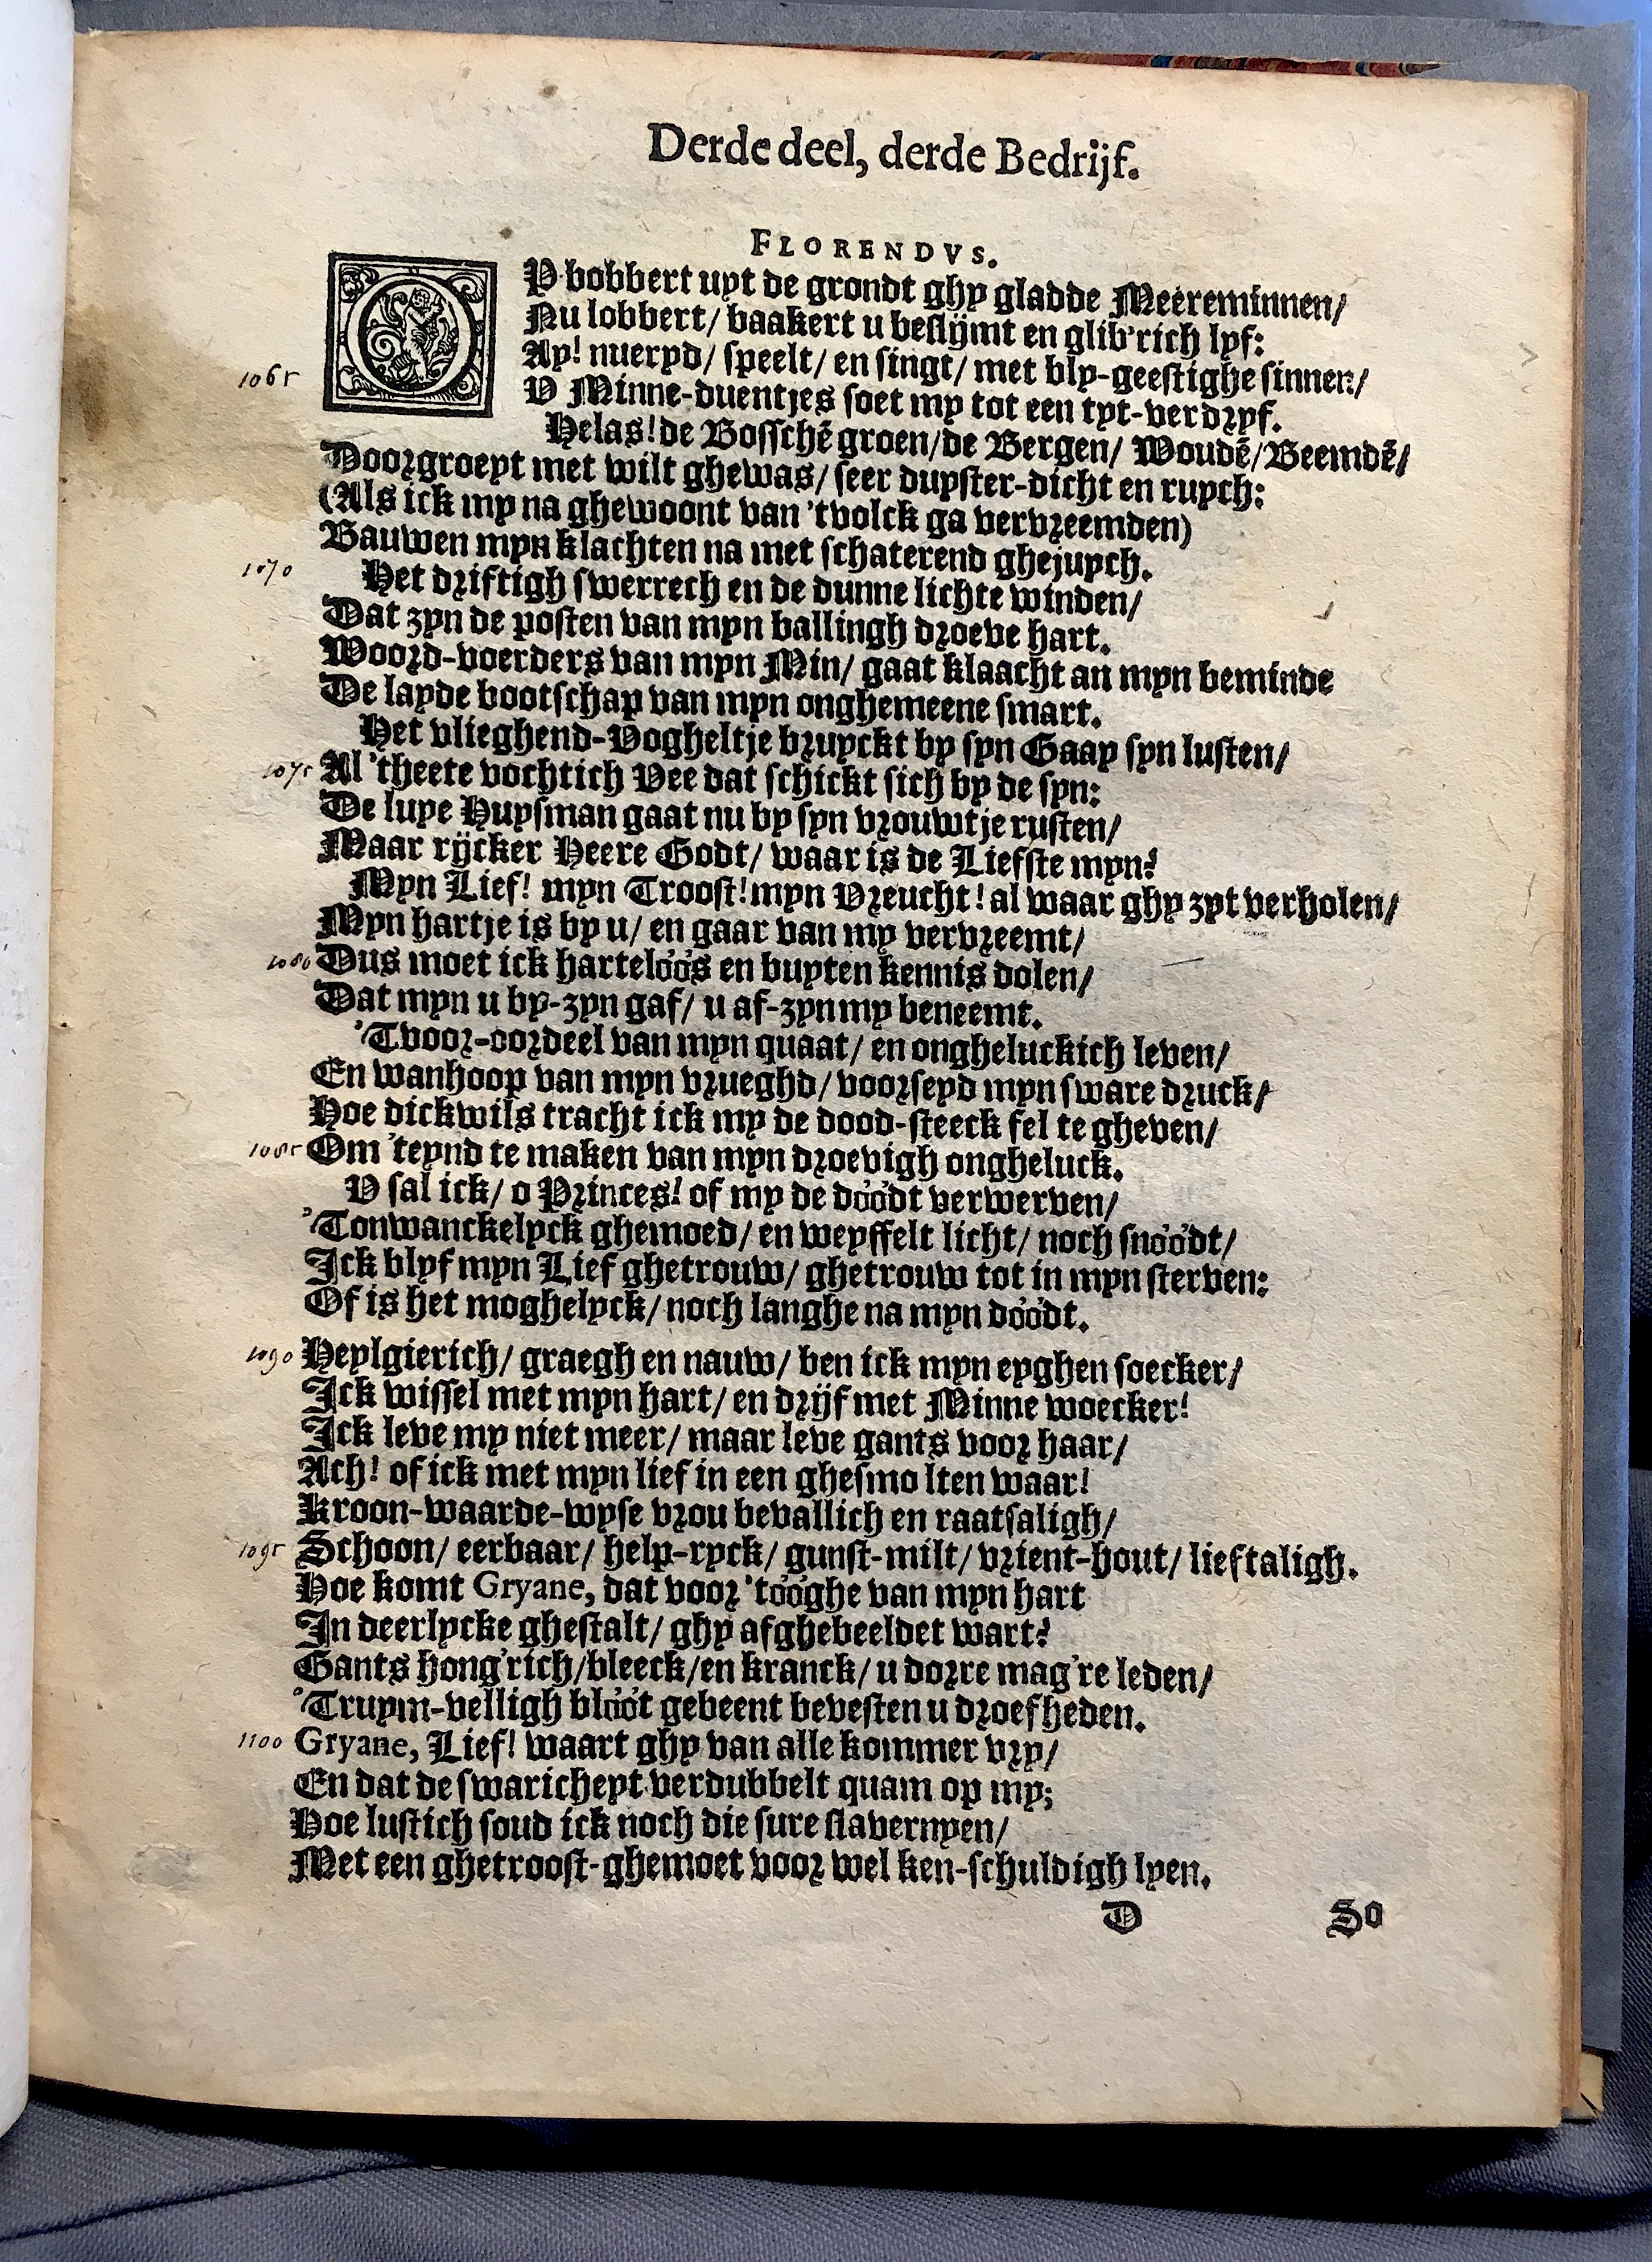 Derde deel, derde Bedrijf.
FLORENDVS.
OP bobbert uyt de grondt ghy gladde Meereminnen/
Nu lobbert/ baakert u beslijmt en glib'rich lyf:
Ay! nueryd/ speelt/ en singt/ met bly-geestighe sinnen/
1065
V Minne-duentjes soet my tot een tyt-verdryf.
Helas! de Bosschē groen/de Bergen/ Woudē/Beemdē/
Doorgroeyt met wilt ghewas/ seer duyster-dicht en ruych:
(Als ick my na ghewoont van 'tvolck ga vervreemden)
Bauwen myn klachten na met schaterend ghejuych.
1070
Het driftigh swerrech en de dunne lichte winden/
Dat zyn de posten van myn ballingh droeve hart.
Woord-voerders van myn Min/ gaat klaacht an myn beminde
De layde bootschap van myn onghemeene smart.
Het vlieghend-Vogheltje bruyckt by syn Gaay syn lusten/
1075 Al 'theete vochtich Vee dat schickt sich by de syn:
De luye Huysman gaat nu by syn vrouwtje rusten/
Maar rijcker Heere Godt/ waar is de Liefste myn?
Myn Lief! myn Troost! myn Vreucht! al waar ghy zyt verholen/
Myn hartje is by u/ en gaar van my vervreemt/
1080 Dus moet ick harteloos en buyten kennis dolen/
Dat myn u by-zyn gaf/ u af-zyn my beneemt.
'Tvoor-oordeel van myn quaat/ en ongheluckich leven/
En wanhoop van myn vrueghd/ voorseyd myn sware druck/
Hoe dickwils tracht ick my de dood-steeck fel te gheven/
1085 Om 'teynd te maken van myn droevigh ongheluck.
V sal ick/ o Princes! of my de doodt verwerven/
'Tonwanckelyck ghemoed/ en weyffelt licht/ noch snoodt/
Ick blyf myn Lief ghetrouw/ ghetrouw tot in myn sterven:
Of is het moghelyck/ noch langhe na myn doodt.
1090 Heylgierich/ graegh en nauw/ ben ick myn eyghen soecker/
Ick wissel met myn hart/ en drijf met Minne woecker!
Ick leve my niet meer/ maar leve gants voor haar/
Ach! of ick met myn lief in een ghesmo lten waar!
Kroon-waarde-wyse vrou bevallich en raatsaligh/
1095 Schoon/ eerbaar/ help-ryck/ gunst-milt/ vrient-hout/ lieftaligh.
Hoe komt Gryane, dat voor 'tooghe van myn hart
In deerlycke ghestalt/ ghy afghebeeldet wart?
Gants hong'rich/bleeck/en kranck/ u dorre mag're leden/
'Truym-velligh bloot gebeent bevesten u droefheden.
1100 Gryane, Lief! waart ghy van alle kommer vry/
En dat de swaricheyt verdubbelt quam op my;
Hoe lustich soud ick noch die sure slavernyen/
Met een ghetroost-ghemoet voor wel ken-schuldigh lyen.
D So